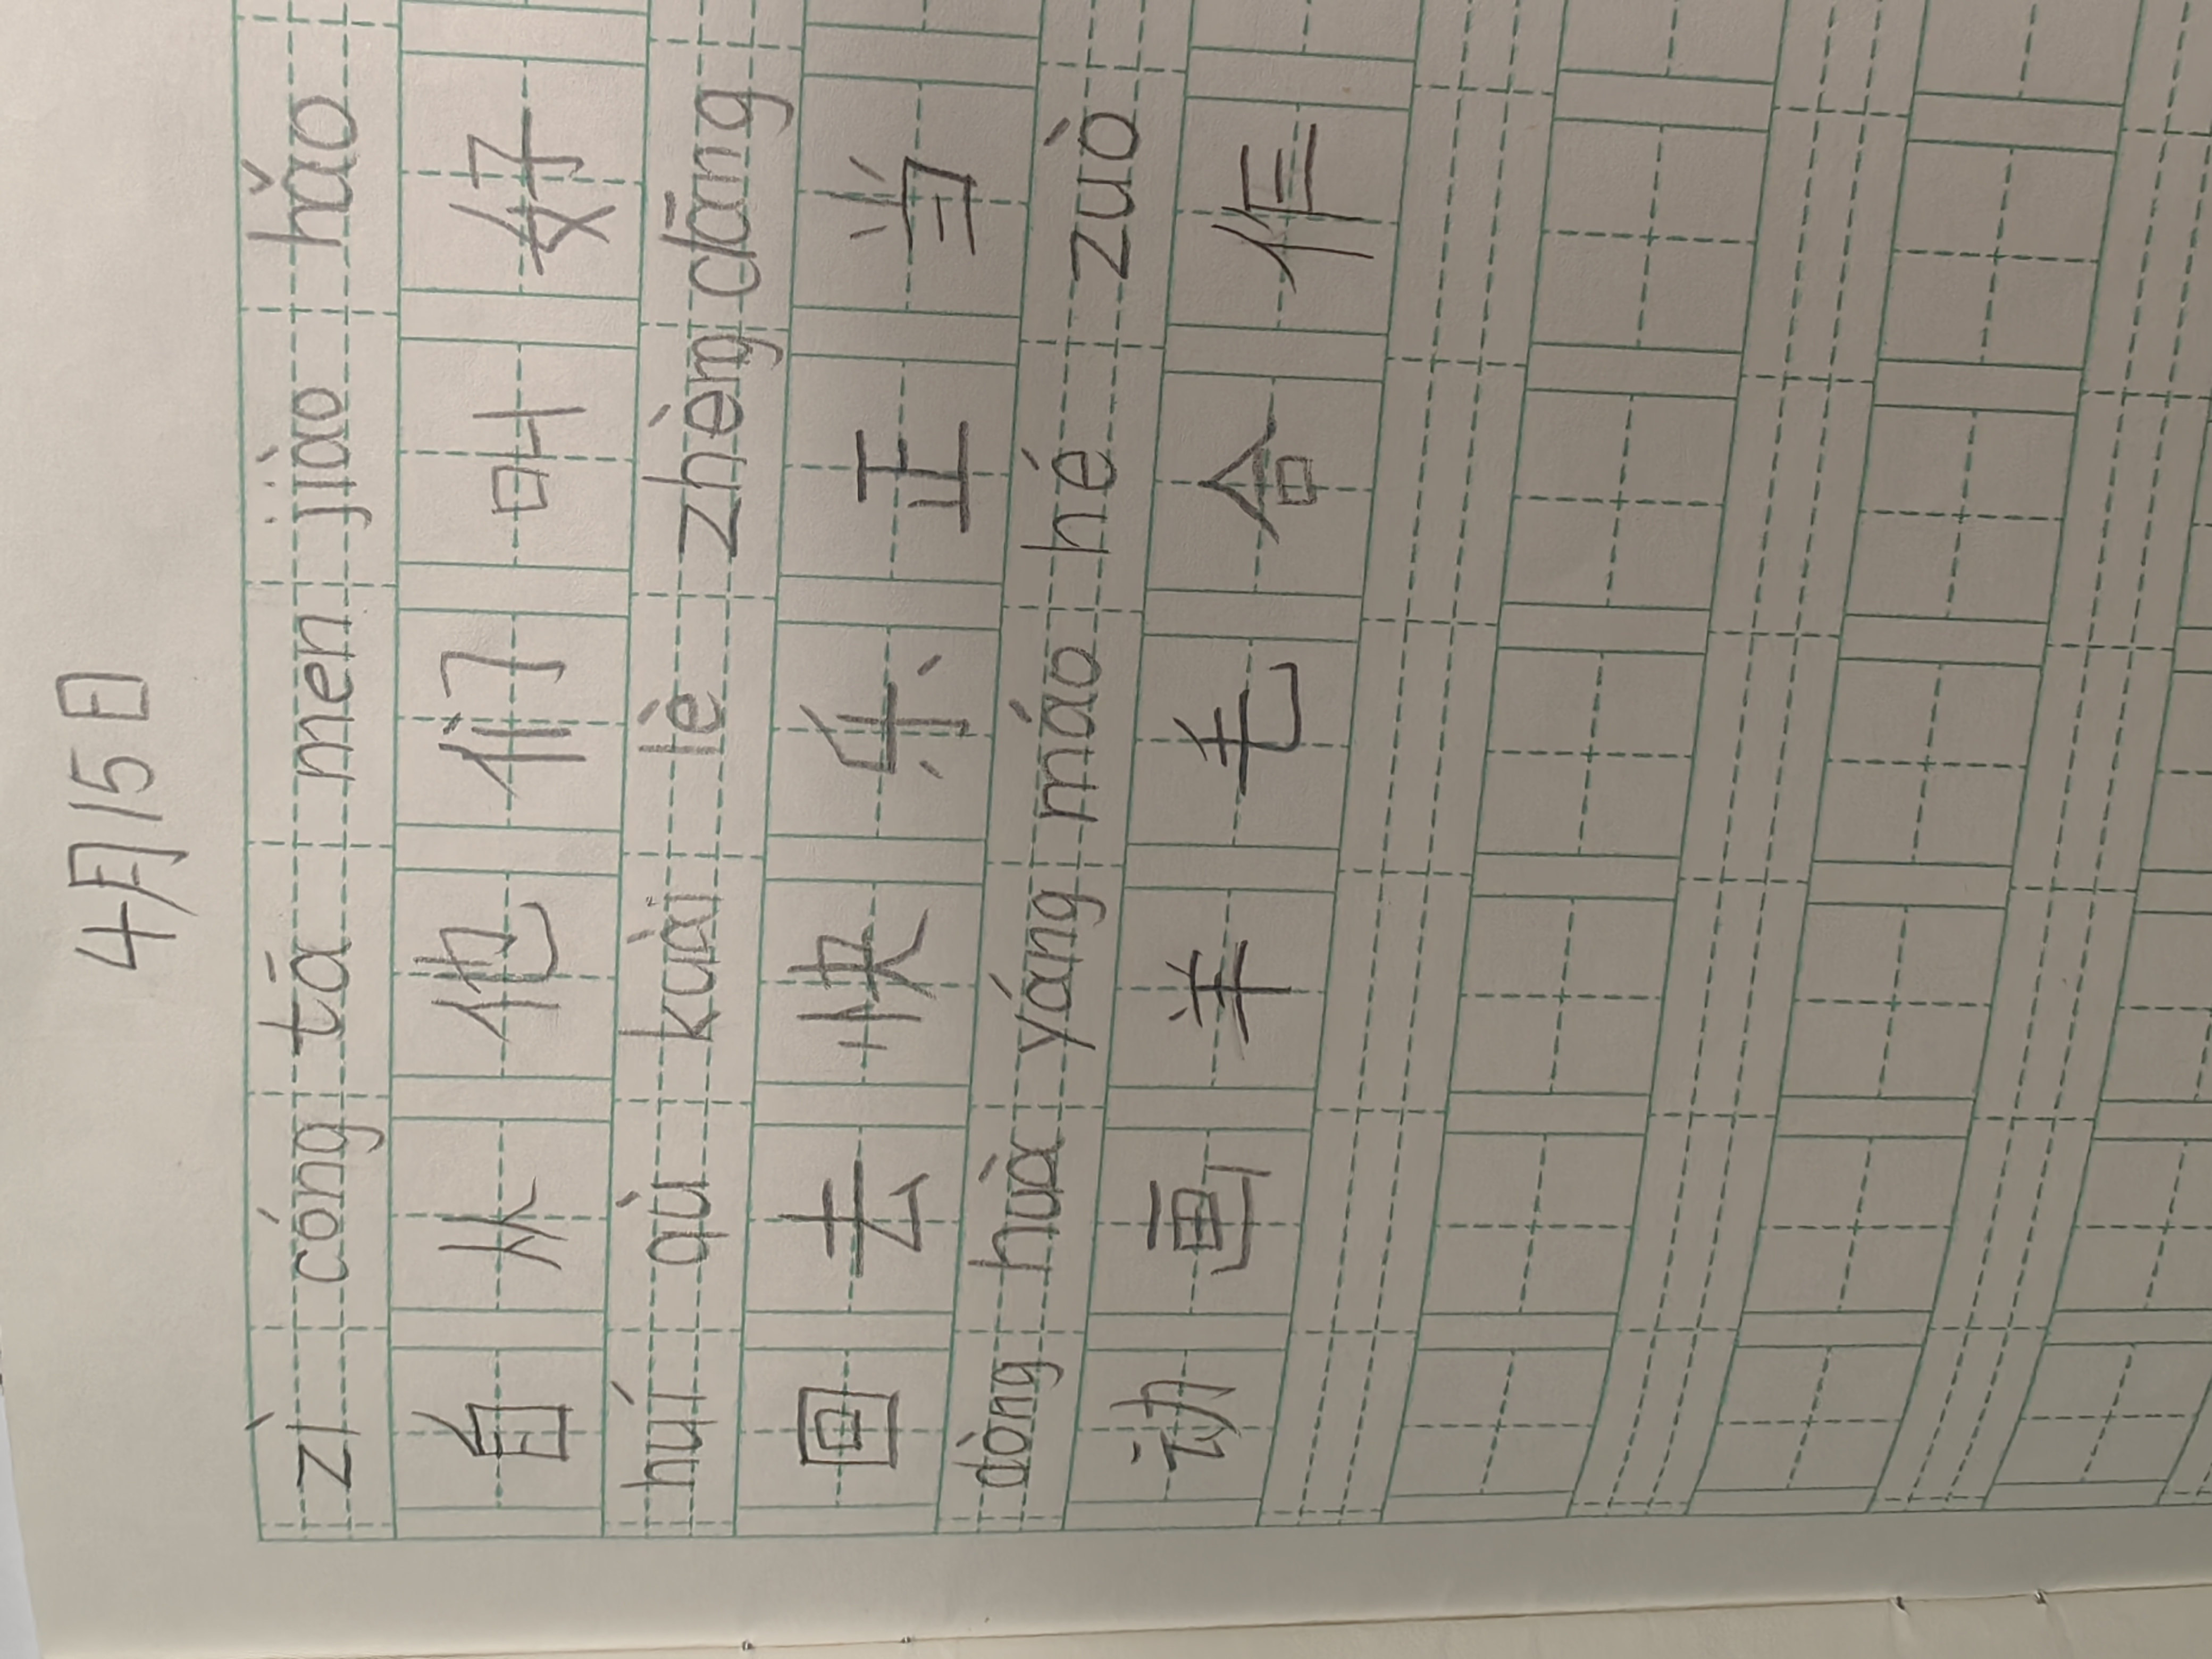 4月15日
zì cóng tā men jiào hǎo
自 从 他 们 叫 好
huí qù kuài lè zhèng dāng
回 去 快 乐 正 当
dòng huà yáng máo hé zuò
动 画 羊 毛 合 作